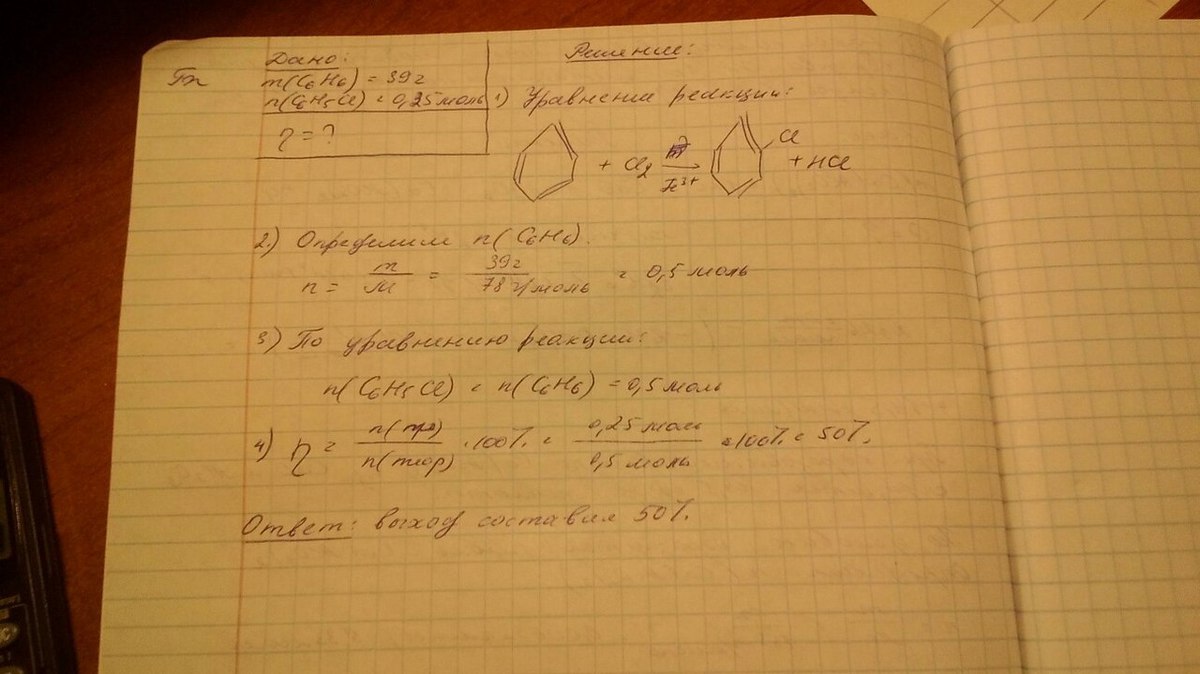 Дано:
m(C6H6) = 39г
n(C6H5Cl) = 0,25 моль
η = ?
Решение:
1) Уравнение реакции:
+ Cl2 → Fe3+ Cl + HCl
2.) Определим n(C6H6).
n = m/M = 39г/78 г/моль = 0,5 моль
3) По уравнению реакции:
n(C6H5Cl) = n(C6H6) = 0,5 моль
4) η = n(пр)/n(теор) · 100% = 0,25 моль/0,5 моль · 100% = 50%.
Ответ: выход составил 50%.